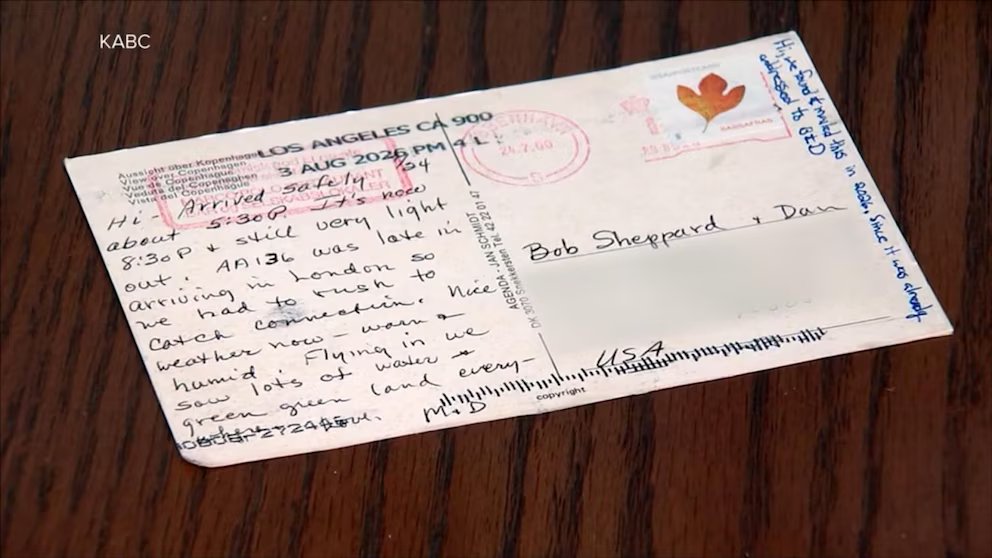 KABC
LOS ANGELES CA 900
3 AUG 2026 PM 4 L
Aussicht über Kopenhagen
View over Copenhagen
Vue de Copenhague
Veduta del Copenaghen
Vista del Copenhague
7/24
Hi - Arrived safely
about 5:30P. It's now
8:30P & still very light
out. AA136 was late in
arriving in London so
we had to rush to
catch connection. Nice
weather now - warm &
humid. Flying in we
saw lots of water &
green green (and every-
where
M & D
AGENDA - JAN SCHMIDT
DK 3070 Snekkersten Tel. 42 22 01 47
copyright
24.7.00
USA POSTCARD
SASSAFRAS
Bob Sheppard & Dan
USA
Hi, we found & mailed this in 2026, since it was
addressed to